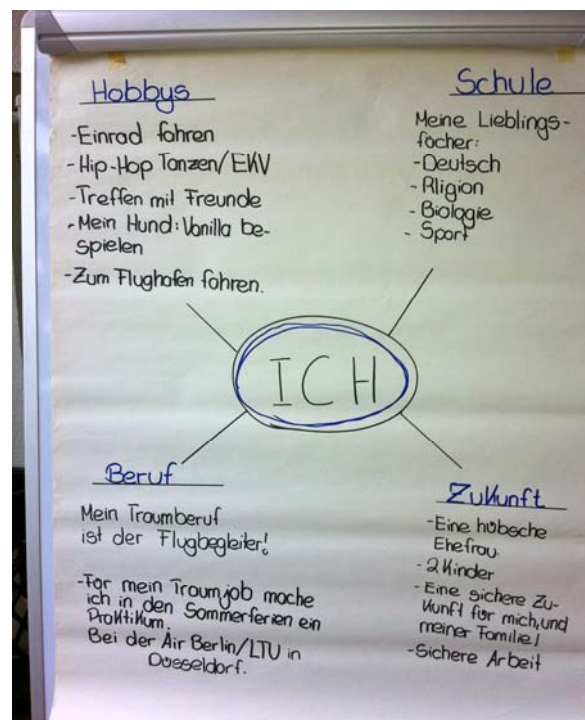 Hobbys
-Einrad fahren
-Hip-Hop Tanzen/EKV
-Treffen mit Freunde
-Mein Hund: Vanilla be-
spielen
-Zum Flughafen fahren.
Schule
Meine Lieblings-
fächer:
-Deutsch
-Rligion
-Biologie
-Sport
ICH
Beruf
Mein Traumberuf
ist der Flugbegleiter!
-Für mein Traumjob mache
ich in den Sommerferien ein
Praktikum.
Bei der Air Berlin/LTU in
Düsseldorf.
Zukunft
-Eine hübsche
Ehefrau.
-2 Kinder
-Eine sichere Zu-
kunft für mich, und
meiner Familie!
-Sichere Arbeit